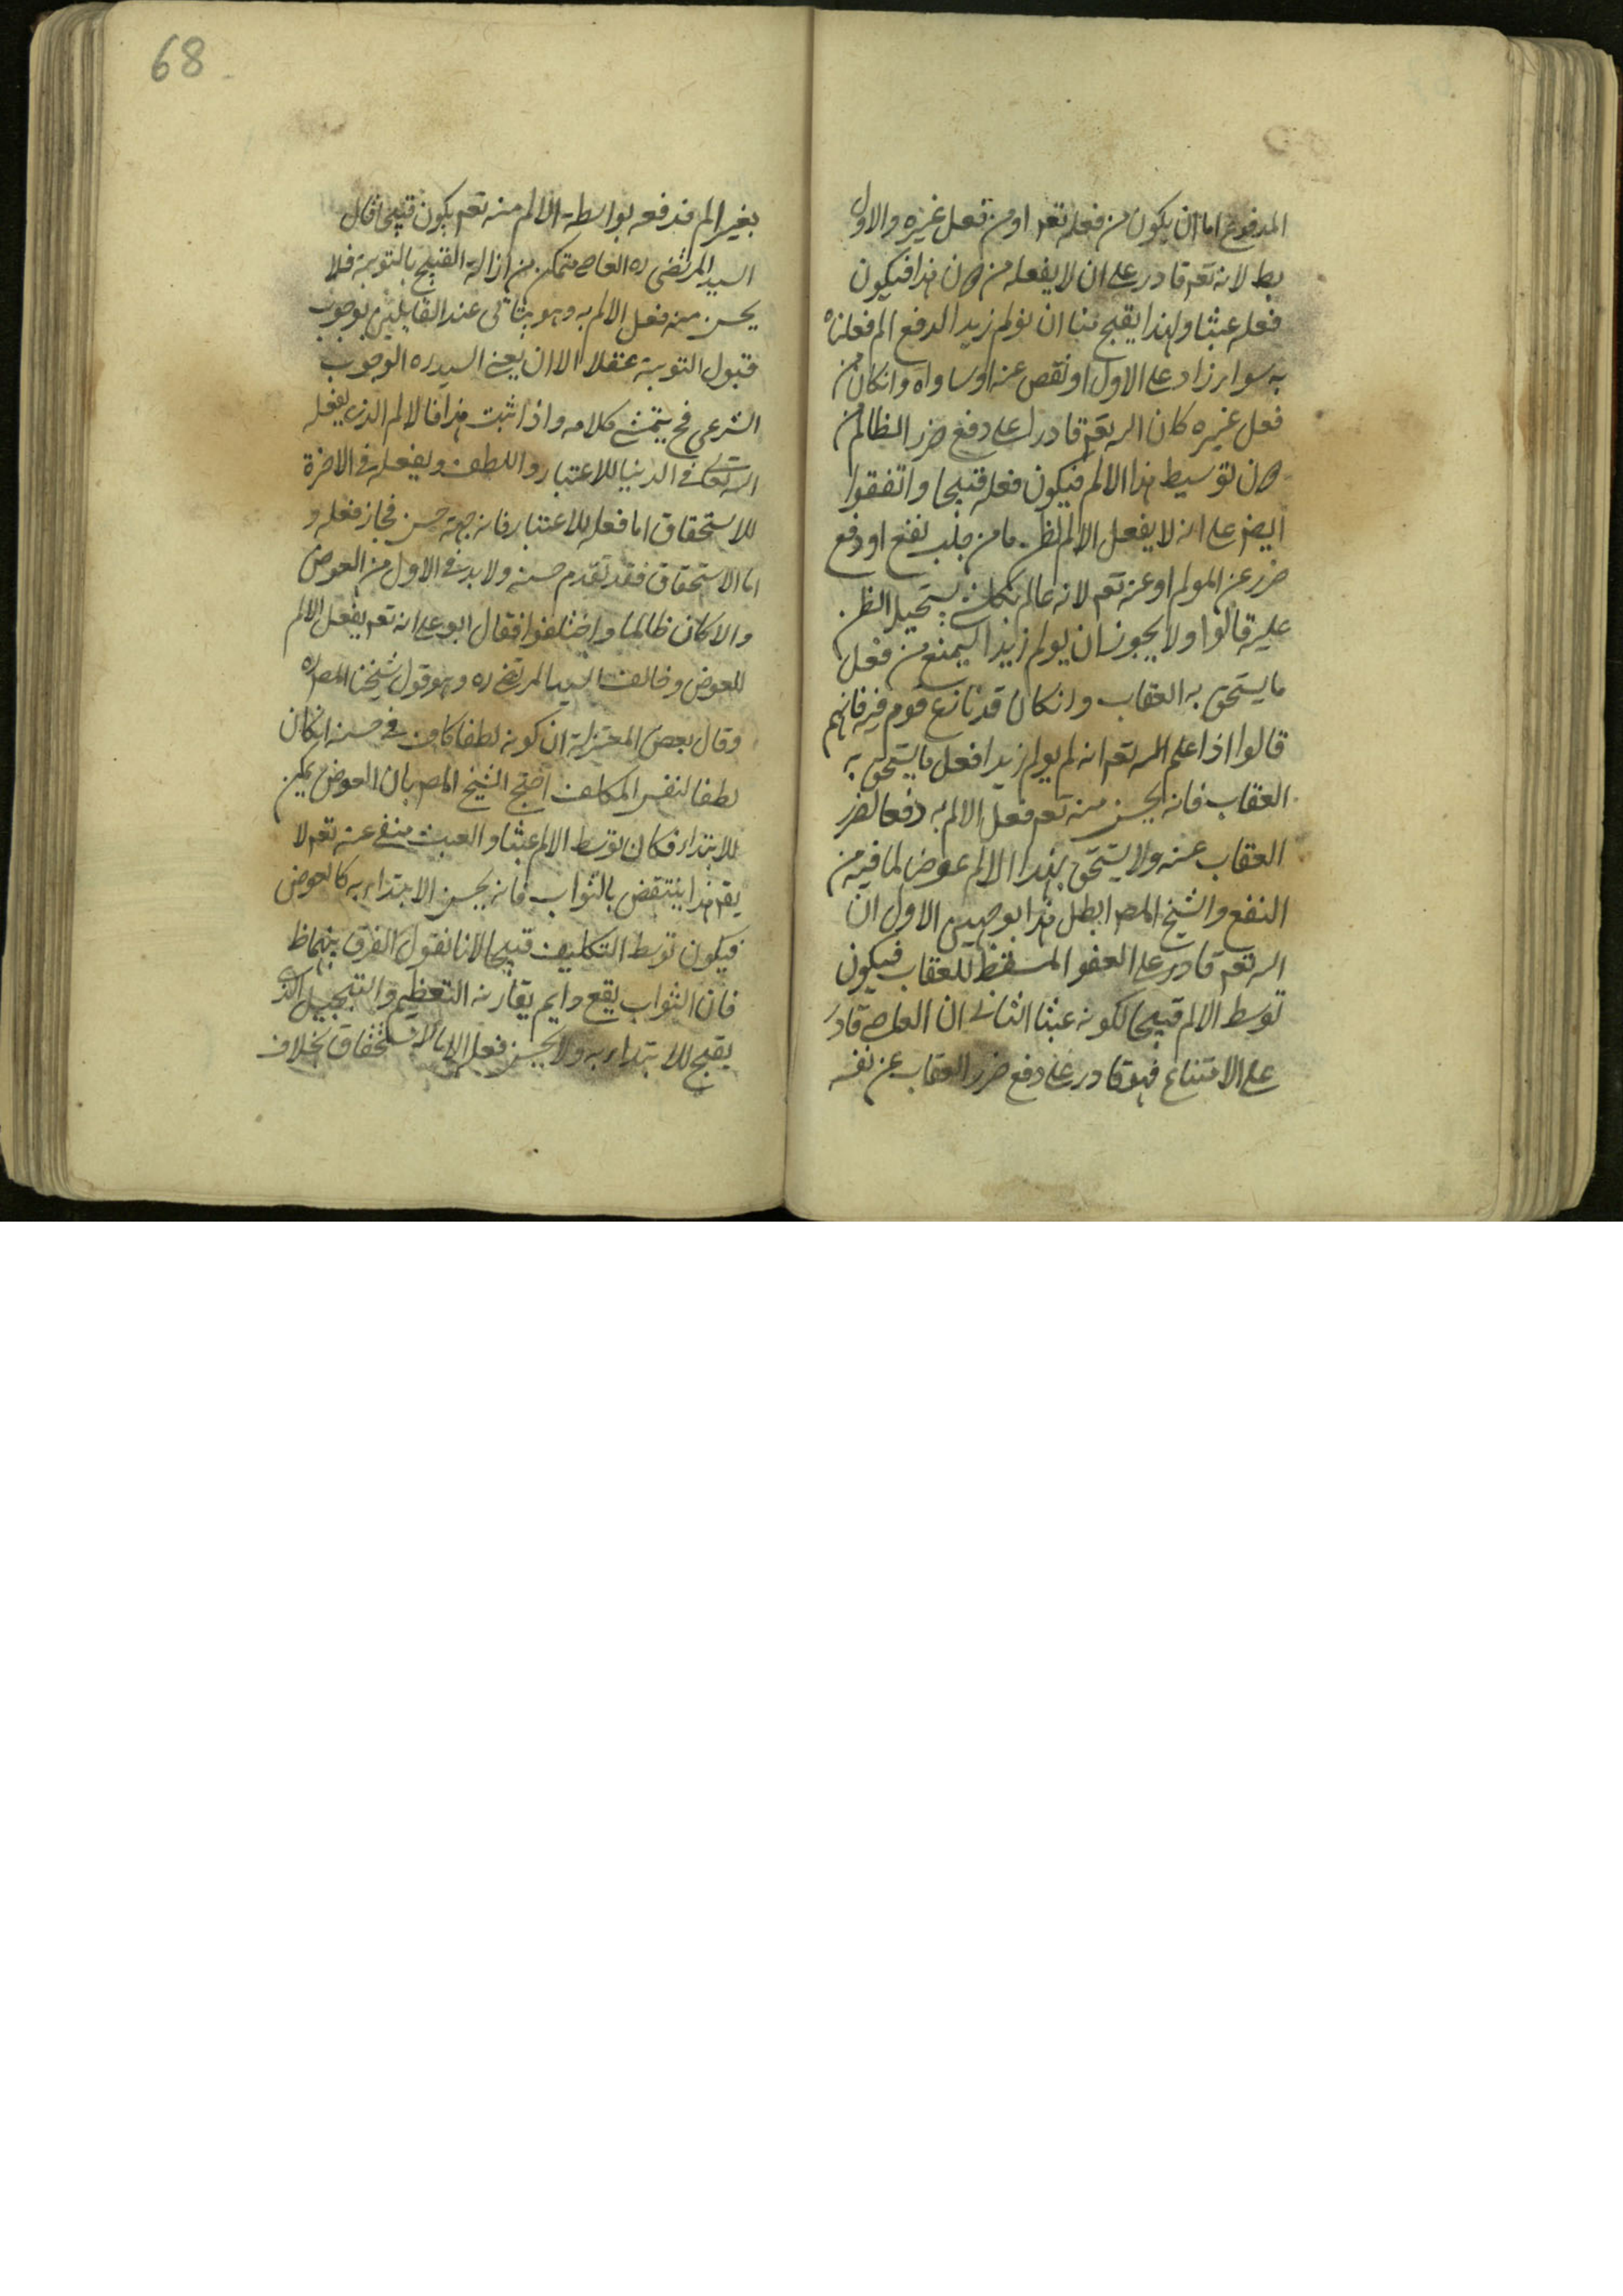 المدفوع اما ان يكون من فعله تعه او من فعل غيره والاول
بط لانه تعه قادر على ان لا يفعله من دون هذا فيكون
فعله عبثا ولهذا يقبح منا ان نولم زيدا لدفع الم فعلناه
به سواء زاد على الاول او نقص عنه او ساواه وانكان من
فعل غيره كان الله تعه قادرا على دفع ضرر الظالم من
دون توسيط هذا الالم فيكون فعله قبيحا واتفقوا
ايضا على انه لا يفعل الالم لظن ما من جلب نفع او دفع
ضرر عن المولم او عنه تعه لانه عالم بكل شي يستحيل الظن
عليه قالوا ولا يجوز ان يولم زيدا ليمنع من فعل
ما يستحق به العقاب وانكان قد نازع قوم فيه فانهم
قالوا اذا علم الله تعه انه لم يولم زيدا فعل ما يستحق به
العقاب فانه يحسن منه تعه فعل الالم به دفعا لضرر
العقاب عنه ولا يستحق بهذا الالم عوضا لما فيه من
النفع والشيخ المص ابطل هذا بوجهين الاول ان
الله تعه قادر على العفو المسقط للعقاب فيكون
توسط الالم قبيحا لكونه عبثا الثاني ان العاصي قادر
على الامتناع فهو قادر على دفع ضرر العقاب عن نفسه
68
بغير الم فدفعه بواسطة الالم منه تعه يكون قبيحا قال
السيد المرتضى ره العاصي متمكن من ازالة القبيح بالتوبة فلا
يحسن منه فعل الالم به وهو يتاتى عند القايلين بوجوب
قبول التوبة عقلا الا ان يعني السيد ره الوجوب
الشرعي فح يتمشى كلامه واذا ثبت هذا فالالم الذي يفعله
الله تعالى في الدنيا للاعتبار واللطف ويفعله في الاخرة
للاستحقاق اما فعله للاعتبار فانه جهة حسن فجاز فعله و
اما الاستحقاق فقد تقدم حسنه ولا بد في الاول من العوض
والا كان ظالما واختلفوا فقال ابو على انه تعه يفعل الالم
للعوض وخالف السيد المرتضى ره وهو قول شيخنا المص ره
وقال بعض المعتزلة ان كونه لطفا كاف في حسنه انكان
لطفا لنفس المكلف احتج الشيخ المص بان العوض يمكن
الابتداء فكان توسط الالم عبثا والعبث منفي عنه تعه لا
يقه هذا ينتقض بالثواب فانه يحسن الابتداء به كالعوض
فيكون توسط التكليف قبيحا لانا نقول الفرق بينهما ظ
فان الثواب يقع دايم يقارنه التعظيم والتبجيل الذي
يقبح للابتداء به ولا يحسن فعله الا بالاستحقاق بخلاف